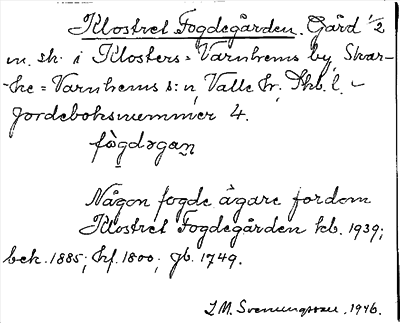 Klostret Fogdegården. Gård 1/2
m. sk. i Klosters=Varnhems by Skar-
ke=Varnhems s:n, Valle hr. Skb. l. –
Jordeboksnummer 4.
fògdəgaṇ
Någon fogde ägare fordom
Klostret Fogdegården kb. 1939;
bek. 1885; hf. 1800; jb. 1749.
I. M. Svenungsson. 1946.